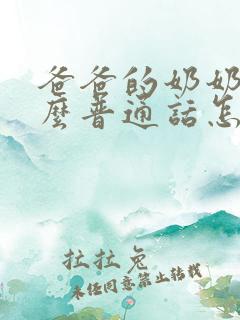 爸爸的奶奶
麼普通話怎
拉拉兔
未经同意禁止转载